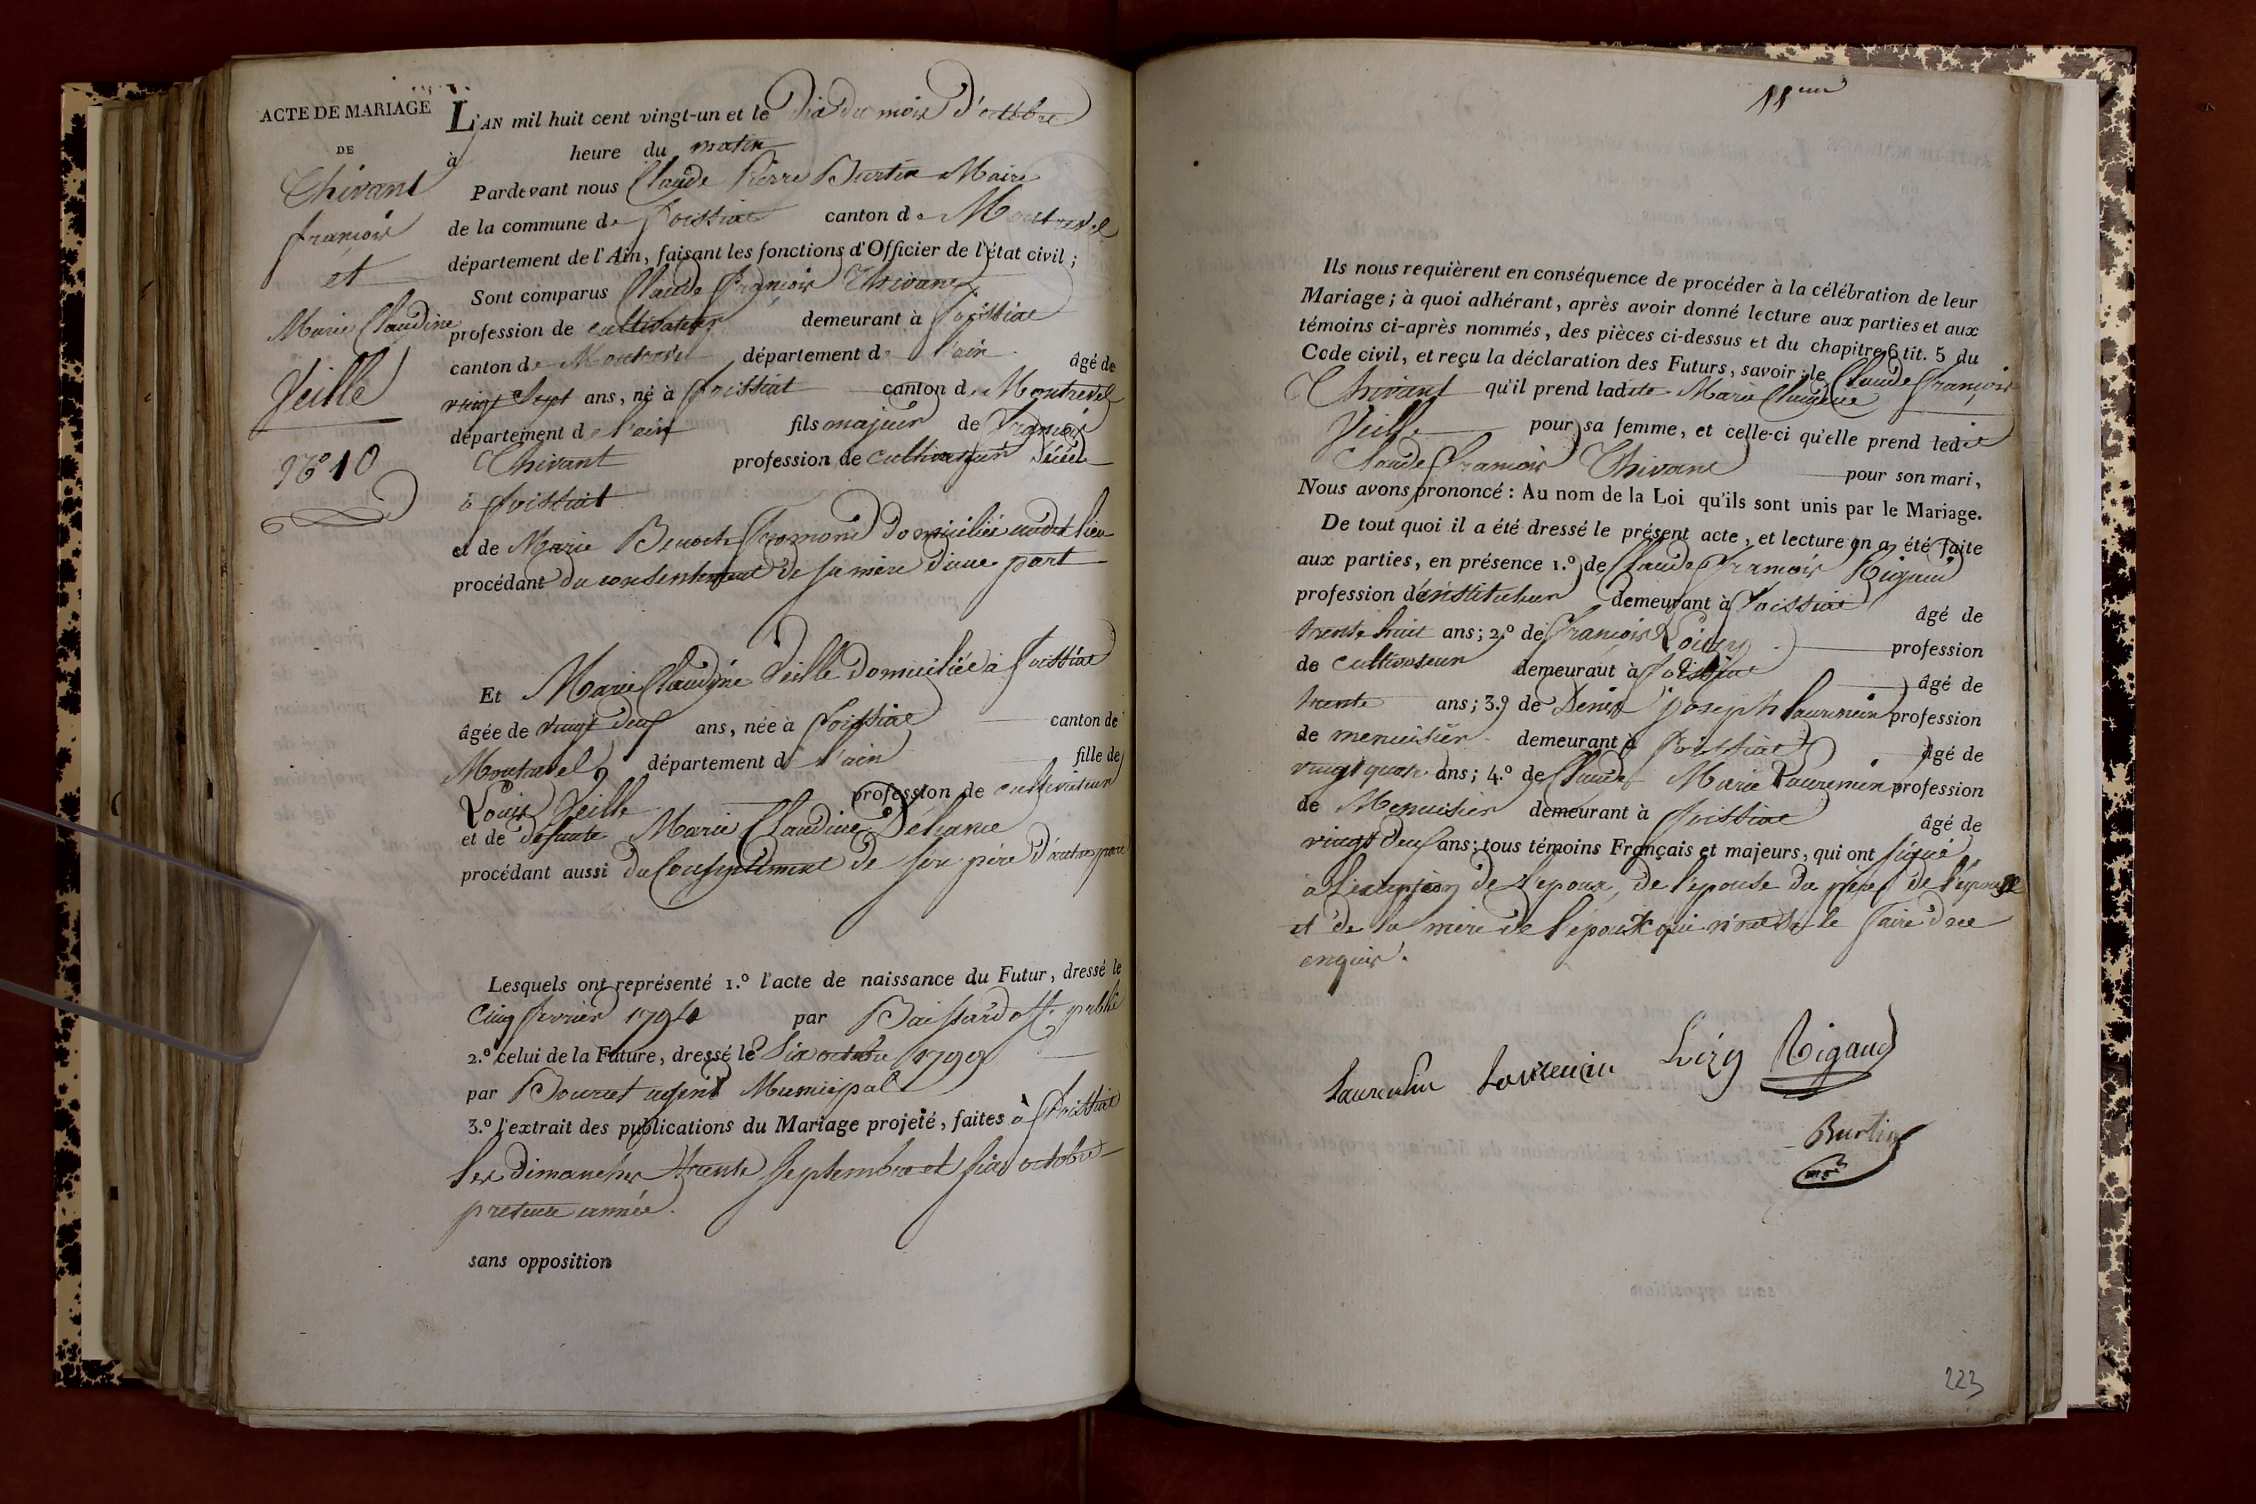 ACTE DE MARIAGE
DE
Thivant
françois
et
Marie Claudine
Veille
N.º 10
L'AN mil huit cent vingt-un et le dix du mois d'octobre
à heure du matin
Pardevant nous Claude Pierre Burtin Maire
de la commune de foissiat canton de Montrevel
département de l'Ain, faisant les fonctions d'Officier de l'état civil ;
Sont comparus Claude françois Thivant
profession de cultivateur demeurant à foissiat
canton de Montrevel département de l'ain âgé de
vingt Sept ans, né à foissiat canton de Montrevel
département de l'ain fils majeur de françois
Thivant profession de cultivateur décédé
à foissiat
et de Marie Benoite fromond domiciliée audit lieu
procédant du consentement de sa mère d'une part
Et Marie Claudine Veille domiciliée à foissiat
âgée de vingt deux ans, née à foissiat canton de
Montrevel département de l'ain fille de
Louis Veille profession de cultivateur
et de defunte Marie Claudine
procédant aussi du Consentement de son père d'autre part
Lesquels ont représenté 1.º l'acte de naissance du Futur, dressé le
Cinq fevrier 1794 par off. public
2.º celui de la Future, dressé le Six octobre 1799
par Bouret agent Municipal
3.º l'extrait des publications du Mariage projeté, faites à foissiat
les Dimanches trente Septembre et sept octobre
presente année.
sans opposition
11eme
Ils nous requièrent en conséquence de procéder à la célébration de leur
Mariage ; à quoi adhérant, après avoir donné lecture aux parties et aux
témoins ci-après nommés, des pièces ci-dessus et du chapitre 6 tit. 5 du
Code civil, et reçu la déclaration des Futurs, savoir : le Claude françois
Thivant qu'il prend ladite Marie Claudine
Veille pour sa femme, et celle-ci qu'elle prend ledit
Claude françois Thivant pour son mari,
Nous avons prononcé : Au nom de la Loi qu'ils sont unis par le Mariage.
De tout quoi il a été dressé le présent acte, et lecture en a été faite
aux parties, en présence 1.º de Claude françois Rigaud
profession d'instituteur demeurant à foissiat âgé de
trente huit ans ; 2.º de françois profession
de cultivateur demeurant à foissiat âgé de
trente ans ; 3.º de Denis joseph Laurencin profession
de menuisier demeurant à foissiat âgé de
vingt quatre ans ; 4.º de Claude Marie Laurencin profession
de Menuisier demeurant à foissiat âgé de
vingt deux ans ; tous témoins Français et majeurs, qui ont signé
à l'exception de l'epoux, de l'epouse du père de l'épouse
et de la mère de l'epoux qui n'ont su le faire de ce
enquis.
Laurencin Laurencin Rigaud
Burtin
223